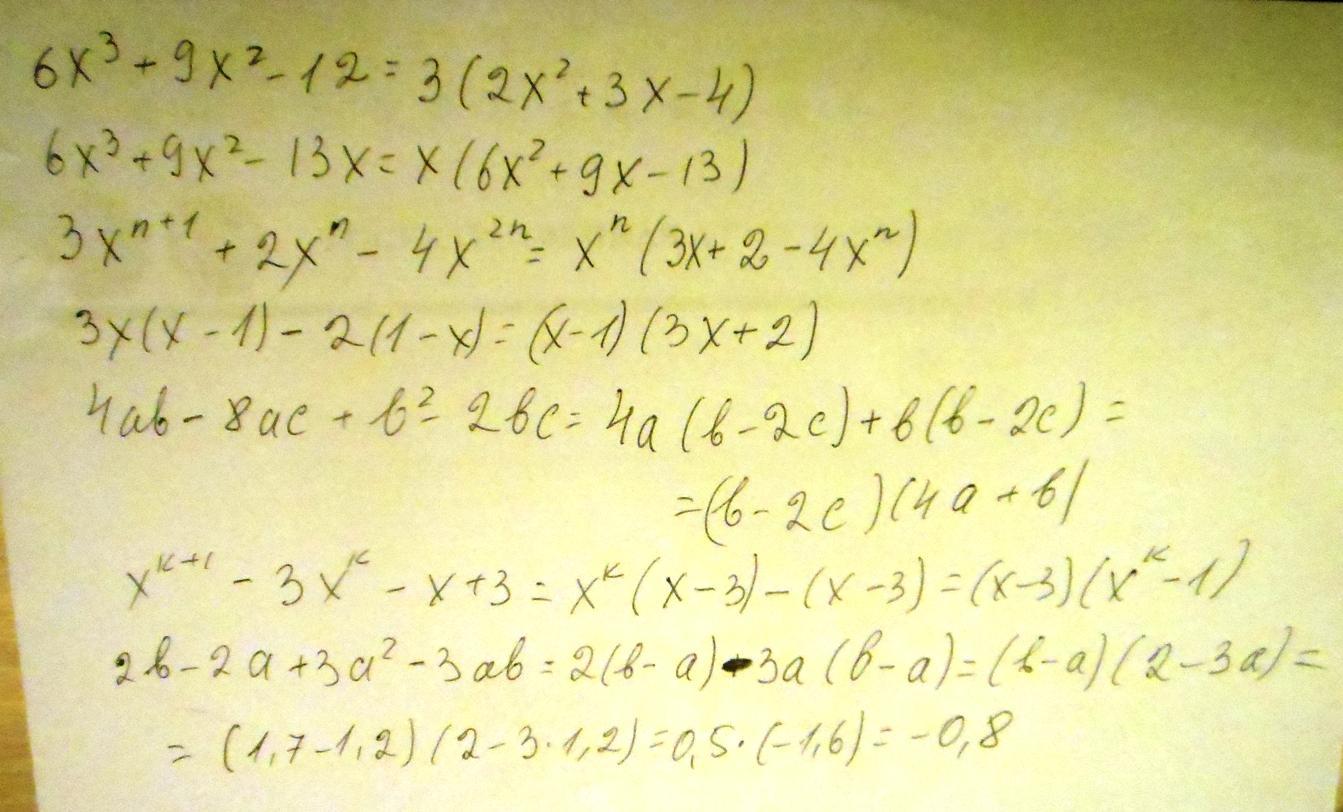 6x³ + 9x² - 12 = 3(2x² + 3x - 4)
6x³ + 9x² - 13x = x(6x² + 9x - 13)
3xⁿ⁺¹ + 2xⁿ - 4x²ⁿ = xⁿ(3x + 2 - 4xⁿ)
3x(x - 1) - 2(1 - x) = (x - 1)(3x + 2)
4ab - 8ac + b² - 2bc = 4a(b - 2c) + b(b - 2c) =
= (b - 2c)(4a + b)
xᵏ⁺¹ - 3xᵏ - x + 3 = xᵏ(x - 3) - (x - 3) = (x - 3)(xᵏ - 1)
2b - 2a + 3a² - 3ab = 2(b - a) - 3a(b - a) = (b - a)(2 - 3a) =
= (1,7 - 1,2)(2 - 3·1,2) = 0,5·(-1,6) = -0,8